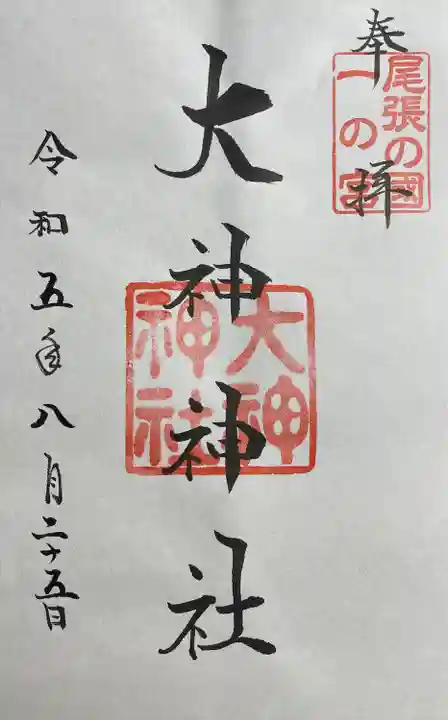 奉拝
尾張の國
一の宮
大神神社
大神
神社
令和五年八月二十五日